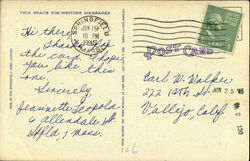 THIS SPACE FOR WRITING MESSAGES
SPRINGFIELD
JUN 19
10 PM
1945
Hi there,
Thanks for
the card. Hope
you like this
one.
Sincerely
Jeannette
6 Allendale St
Spfld, Mass.
POST CARD
Earl W. Walker
222 12th St
Vallejo, Calif
JUN 25